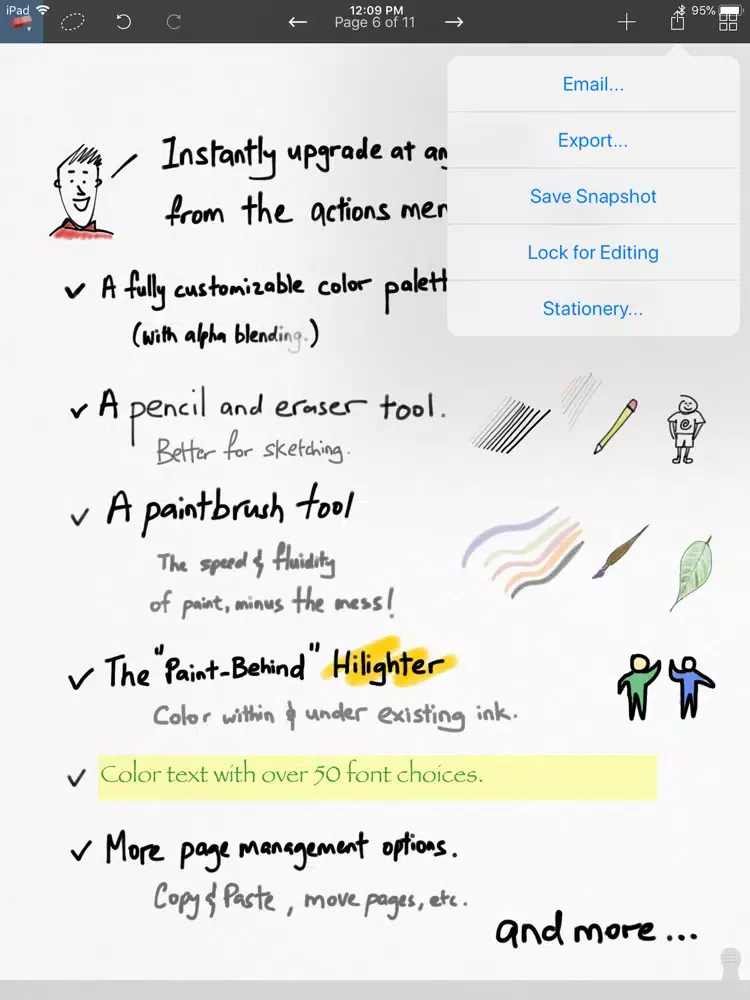 iPad 12:09 PM 95%
Page 6 of 11
Email...
Export...
Save Snapshot
Lock for Editing
Stationery...
Instantly upgrade at
from the actions
✓ A fully customizable color
(with alpha blending.)
✓ A pencil and eraser tool.
Better for sketching.
✓ A paintbrush tool
The speed & fluidity
of paint, minus the mess!
✓ The "Paint-Behind" Hilighter
Color within & under existing ink.
✓ Color text with over 50 font choices.
✓ More page management options.
Copy & Paste, move pages, etc.
and more...